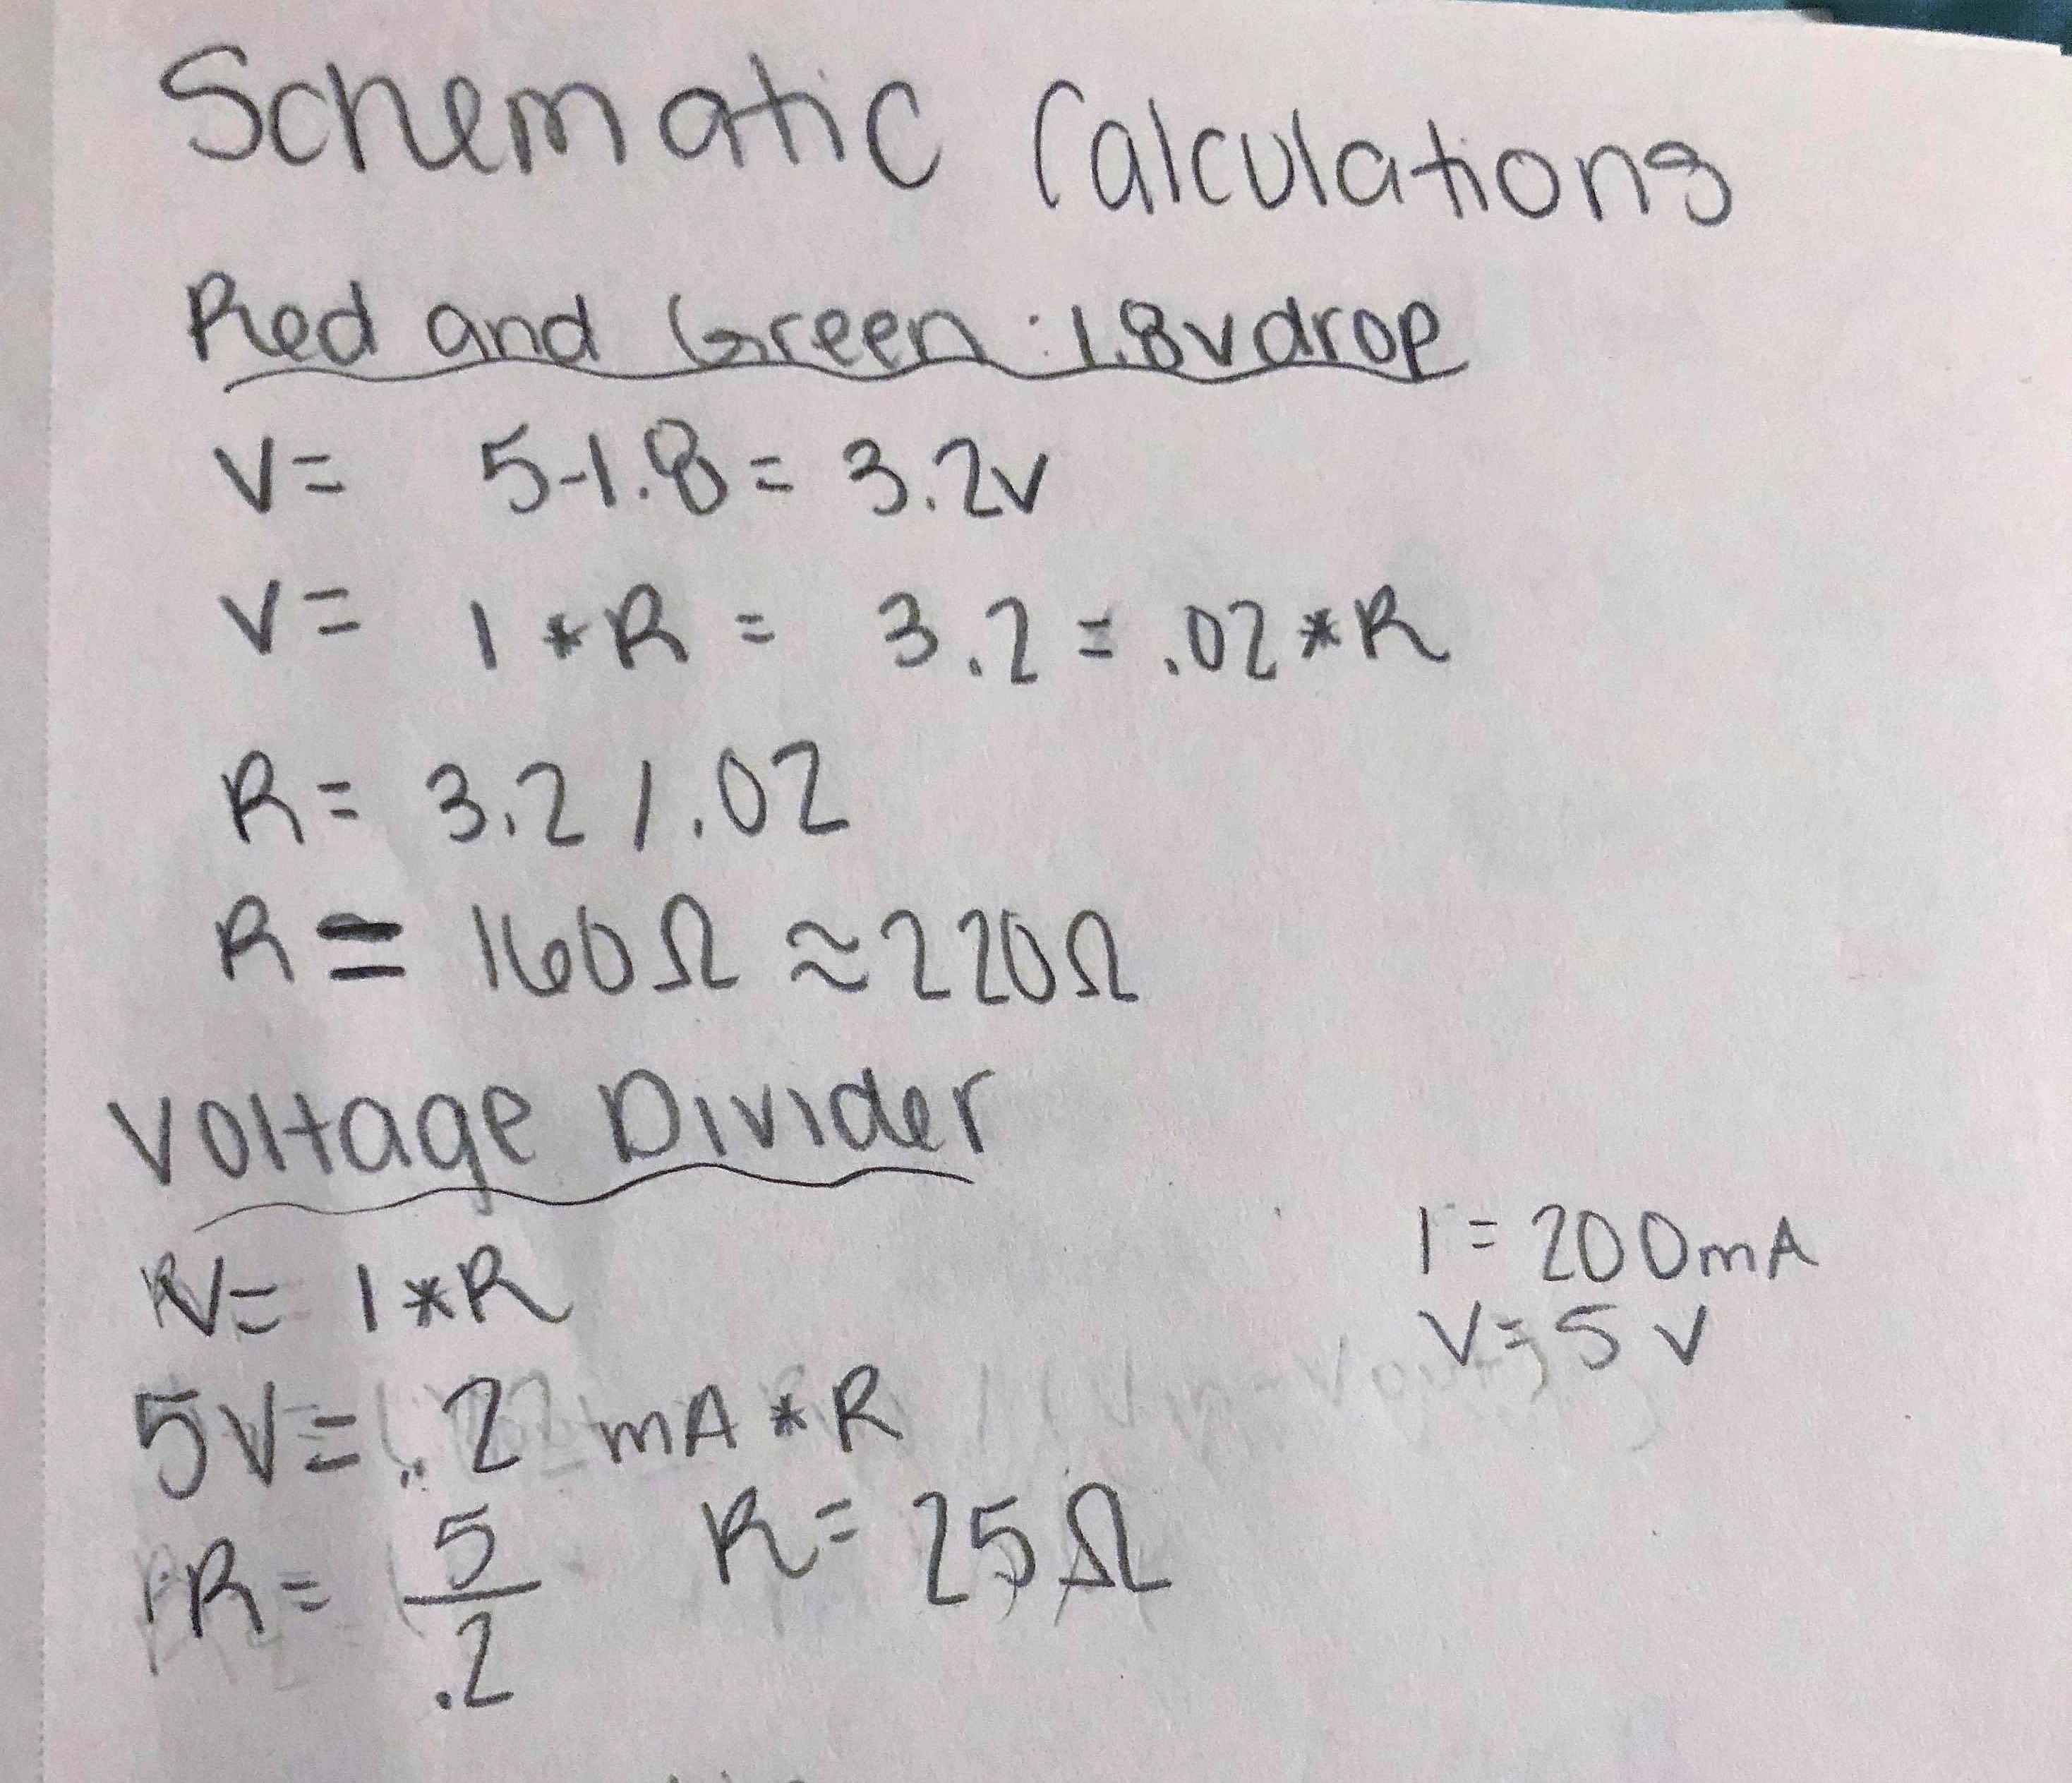 Schematic Calculations
Red and Green : 1.8v drop
V= 5-1.8 = 3.2v
V= I * R = 3.2 = .02 * R
R= 3.2 / .02
R= 160Ω ≈ 220Ω
Voltage Divider
V= I * R
I = 200mA
V= 5 V
5V= .2 mA * R
R= 5/.2 R= 25Ω